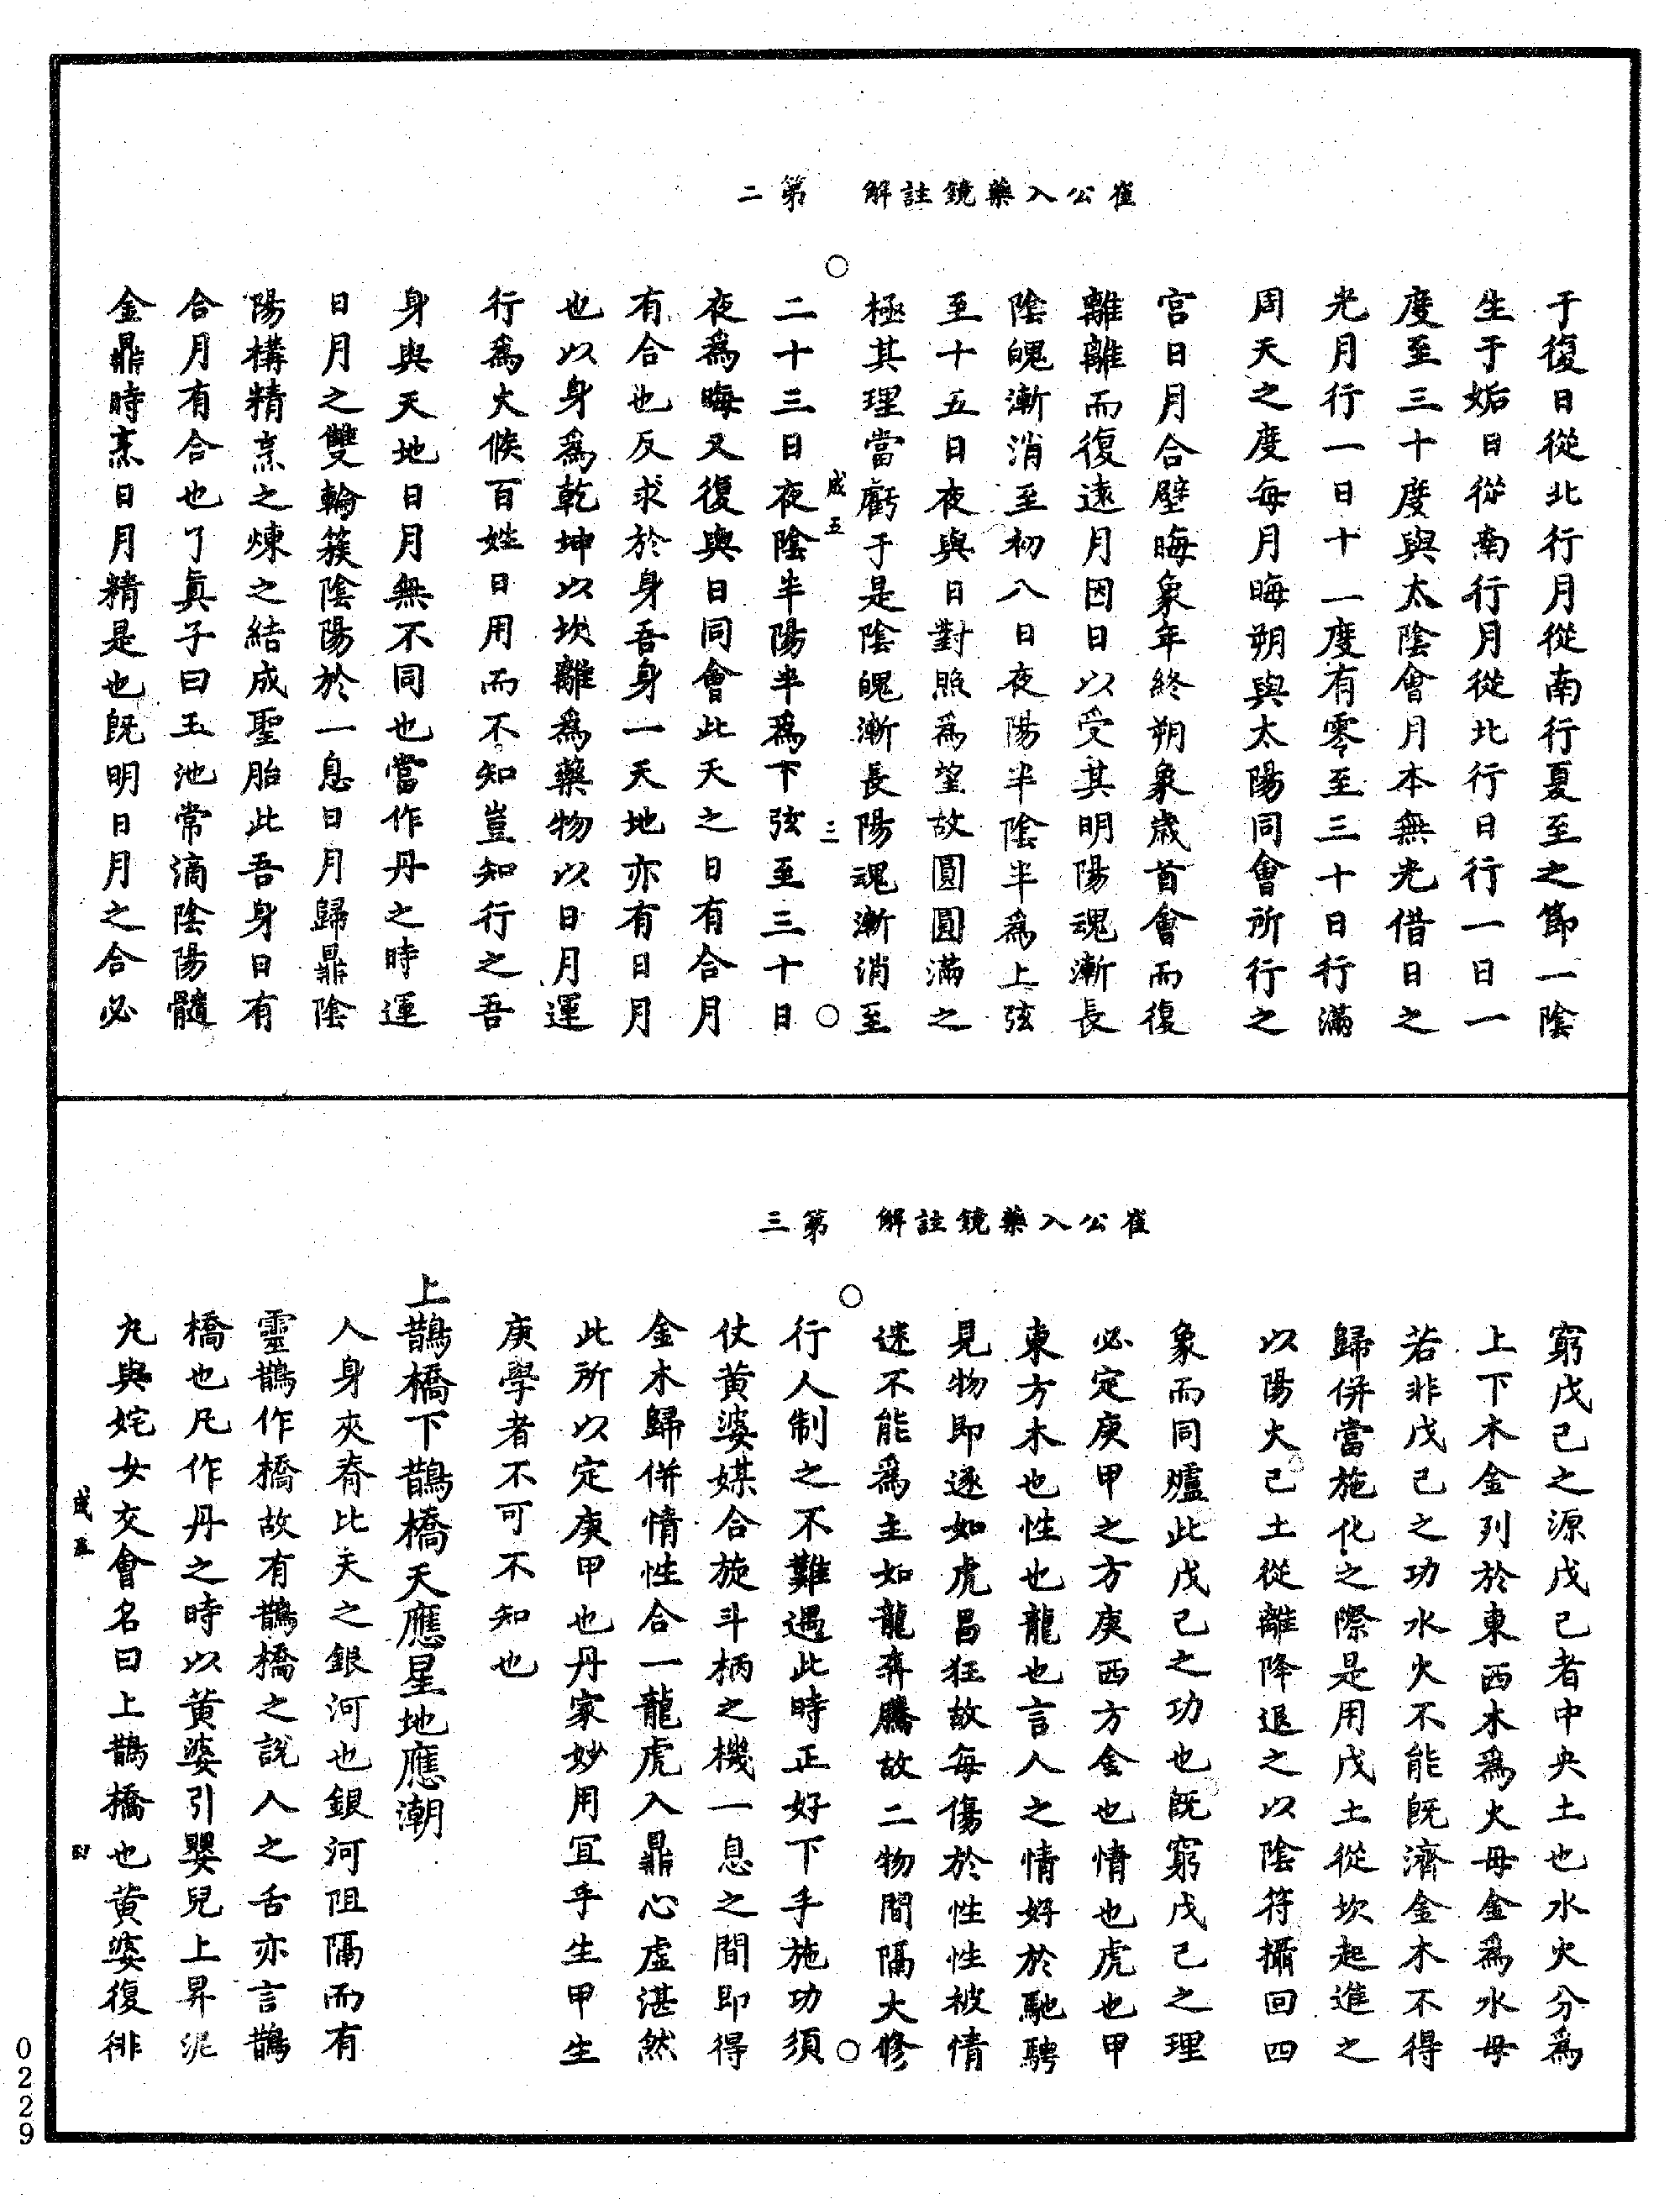 崔公入藥鏡註解　第二
于復日從北行月從南行夏至之節一陰
生于姤日從南行月從北行日行一日一
度至三十度與太陰會月本無光借日之
光月行一日十一度有零至三十日行滿
周天之度每月晦朔與太陽同會所行之
宮日月合壁晦象年終朔象歲首會而復
離離而復遠月因日以受其明陽魂漸長
陰魄漸消至初八日夜陽半陰半爲上弦
至十五日夜與日對照爲望故圓圓滿之
極其理當虧于是陰魄漸長陽魂漸消至
成五　三
二十三日夜陰半陽半爲下弦至三十日
夜爲晦又復與日同會此天之日有合月
有合也反求於身吾身一天地亦有日月
也以身爲乾坤以坎離爲藥物以日月運
行爲火候百姓日用而不知豈知行之吾
身與天地日月無不同也當作丹之時運
日月之雙輪簇陰陽於一息日月歸鼎陰
陽構精烹之煉之結成聖胎此吾身日有
合月有合也了眞子曰玉池常滴陰陽髓
金鼎時烹日月精是也旣明日月之合必
崔公入藥鏡註解　第三
窮戊己之源戊己者中央土也水火分爲
上下木金列於東西木爲火母金爲水母
若非戊己之功水火不能旣濟金木不得
歸併當施化之際是用戊土從坎起進之
以陽火己土從離降退之以陰符攝回四
象而同爐此戊己之功也旣窮戊己之理
必定庚甲之方庚西方金也情也虎也甲
東方木也性也龍也言人之情好於馳騁
見物即逐如虎昌狂故每傷於性性被情
迷不能爲主如龍奔騰故二物間隔大修
行人制之不難遇此時正好下手施功須
仗黃婆媒合旋斗柄之機一息之間即得
金木歸併情性合一龍虎入鼎心虛湛然
此所以定庚甲也丹家妙用宜乎生甲生
庚學者不可不知也
上鵲橋下鵲橋天應星地應潮
人身夾脊比天之銀河也銀河阻隔而有
靈鵲作橋故有鵲橋之說人之舌亦言鵲
橋也凡作丹之時以黃婆引嬰兒上昇泥
丸與姹女交會名曰上鵲橋也黃婆復徘
成五　四
0229